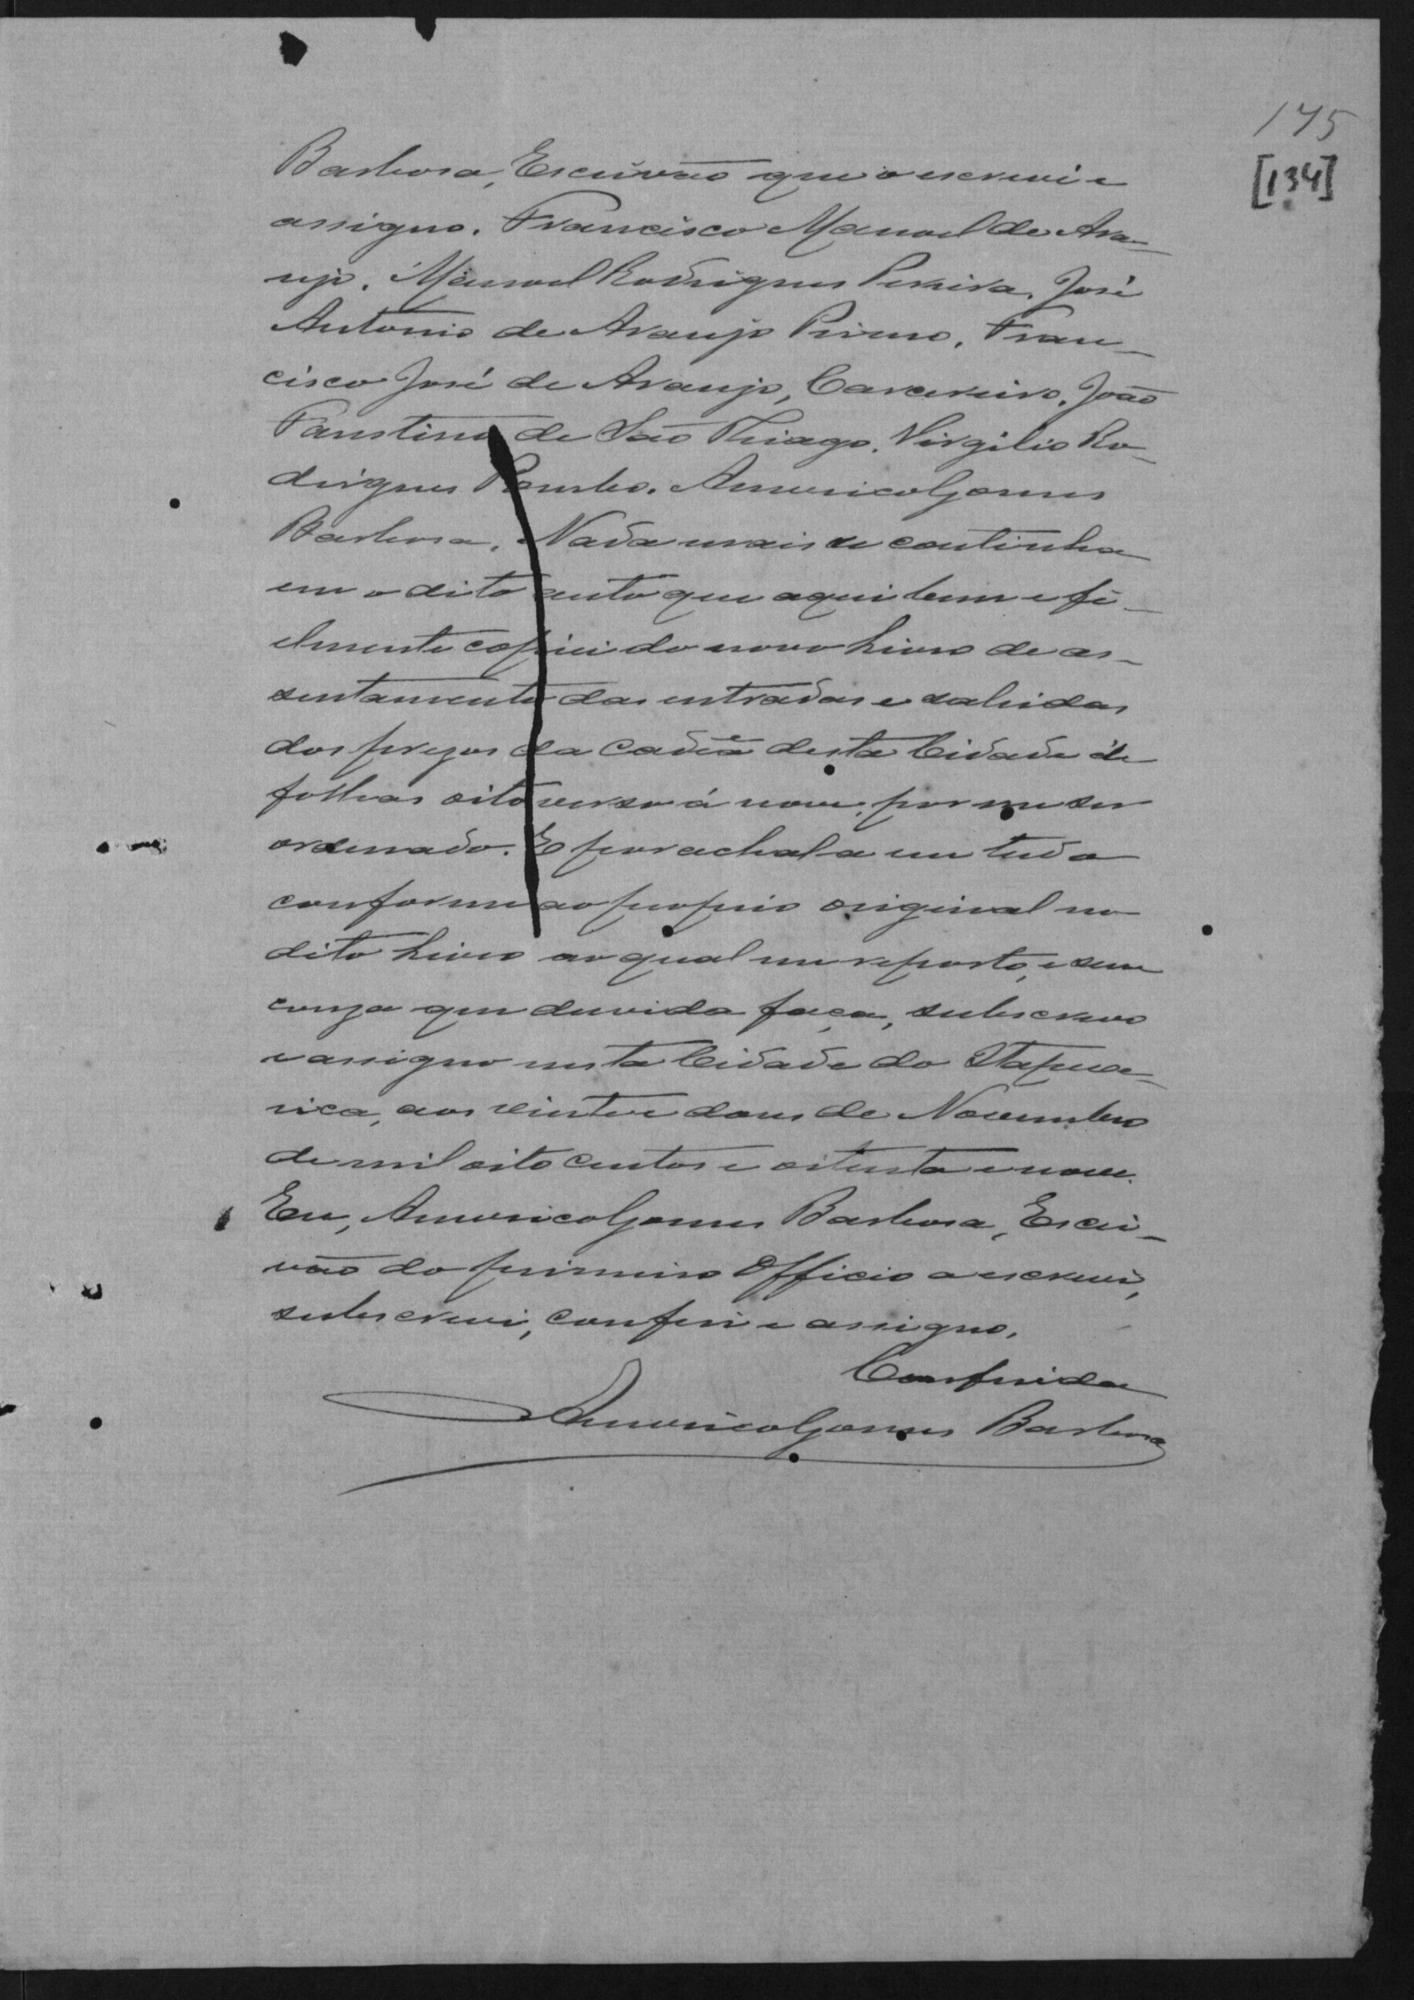 175
[134]
Barbosa, Escrivão que o escrevi e
assigno. Francisco Manoel de Ara-
ujo. Manoel Rodrigues Pereira. José
Antonio de Araujo Primo. Fran-
cisco José de Araujo, Carcereiro. João
Faustino de São Thiago. Virgilio Ro-
drigues Rombo. Americo Gomes
Barbosa. Nada mais se continha
em o dito auto que aqui bem e fi-
elmente copiei do novo Livro de as-
sentamento das entradas e sahidas
dos prezos da Cadeia desta Cidade de
folhas oito verso á nove, por me ser
ordenado. E por achal-a em tudo
conforme ao proprio original no
dito Livro ao qual me reporto, e sem
couza que duvida faça, subscrevo
e assigno nesta Cidade do Itapica-
rica, aos vinte e dous de Novembro
de mil oito centos e oitenta e nove.
Eu, Americo Gomes Barbosa, Escri-
vão do primeiro Officio a escrevi,
subscrevi, conferi e assigno.
Conferida
Americo Gomes Barbosa